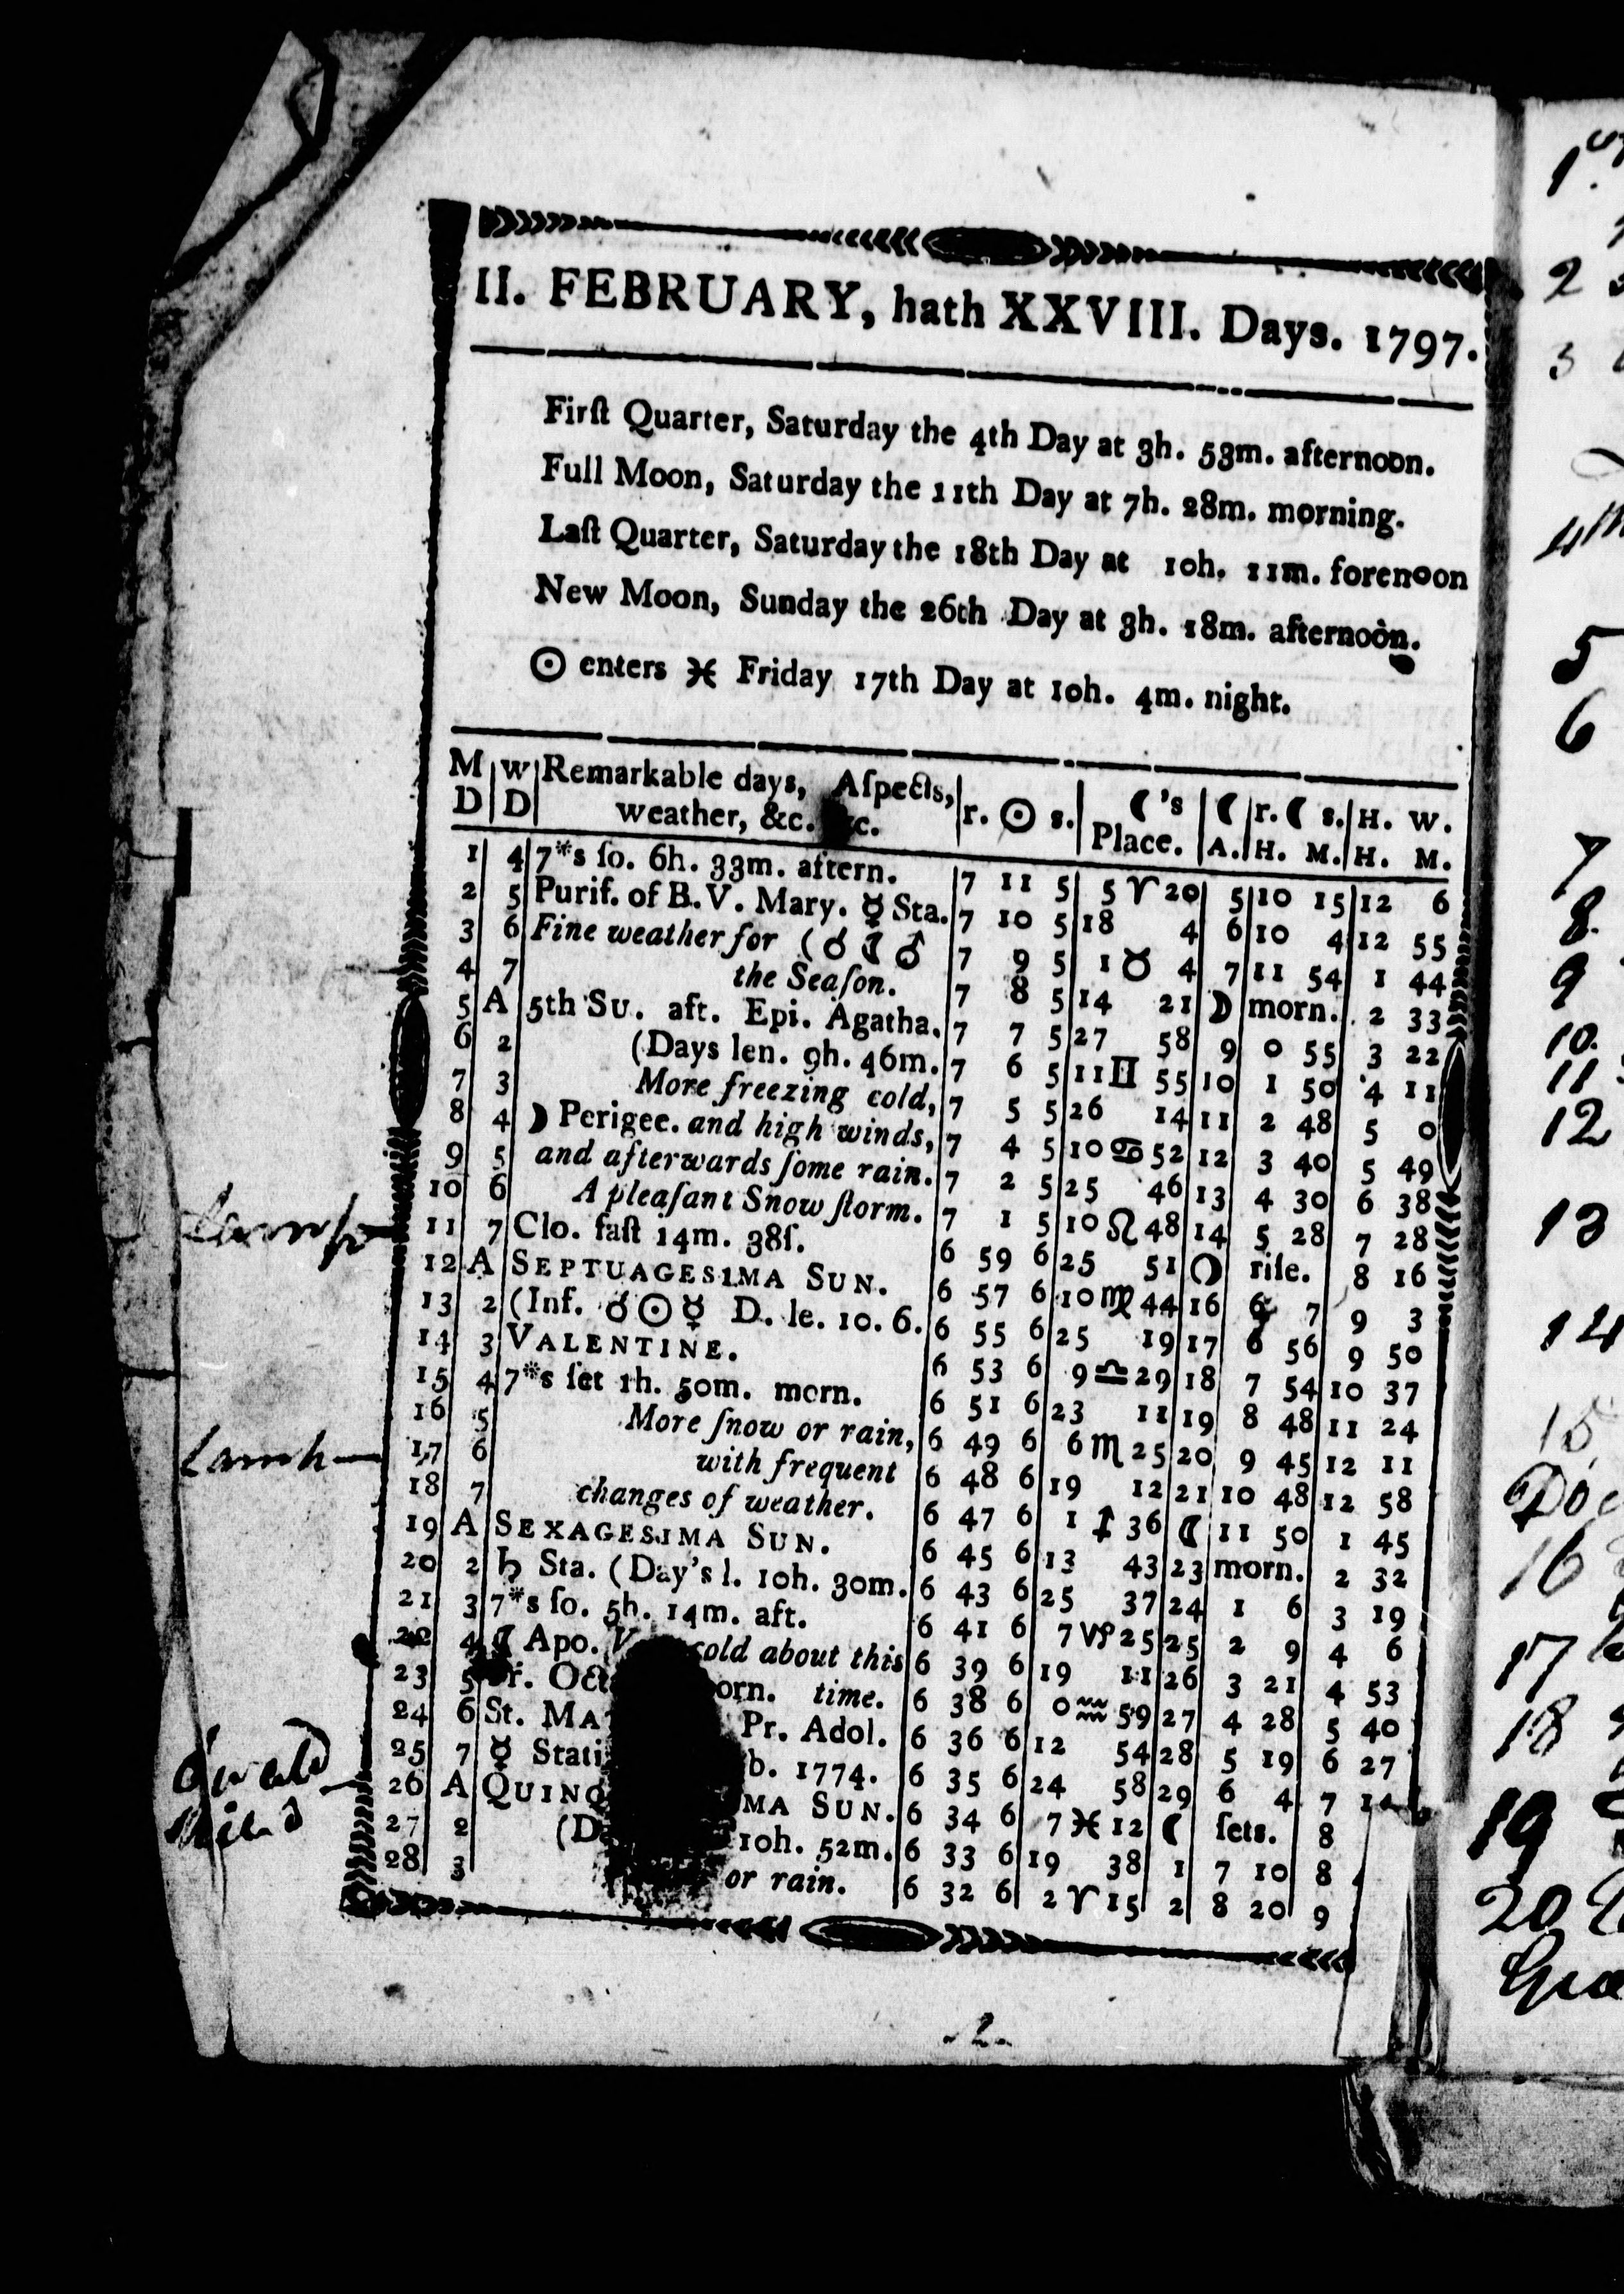 II. FEBRUARY, hath XXVIII. Days. 1797.
Firſt Quarter, Saturday the 4th Day at 3h. 53m. afternoon.
Full Moon, Saturday the 11th Day at 7h. 28m. morning.
Laſt Quarter, Saturday the 18th Day at 10h. 11m. forenoon
New Moon, Sunday the 26th Day at 3h. 18m. afternoon.
☉ enters ♓ Friday 17th Day at 10h. 4m. night.
M D | W D | Remarkable days, Aſpects, weather, &c. | r. ☉ s. | ☾'s Place. | ☾ A. | r. ☾ s. H. M. | H. W. H. M.
1 4 7*s ſo. 6h. 33m. aftern. 7 11 5 5 ♈ 20 5 10 15 12 6
2 5 Purif. of B.V. Mary. ☿ Sta. 7 10 5 18 4 6 10 4 12 55
3 6 Fine weather for (☌ ☾ ♂ 7 9 5 1 ♉ 4 7 11 54 1 44
4 7 the Seaſon. 7 8 5 14 21 ☽ morn. 2 33
5 A 5th Su. aft. Epi. Agatha. 7 7 5 27 58 9 0 55 3 22
6 2 (Days len. 9h. 46m. 7 6 5 11 ♊ 55 10 1 50 4 11
7 3 More freezing cold, 7 5 5 26 14 11 2 48 5 0
8 4 ☽ Perigee. and high winds, 7 4 5 10 ♋ 52 12 3 40 5 49
9 5 and afterwards ſome rain. 7 2 5 25 46 13 4 30 6 38
10 6 A pleaſant Snow ſtorm. 7 1 5 10 ♌ 48 14 5 28 7 28
11 7 Clo. faſt 14m. 38ſ. 6 59 6 25 51 ❍ riſe. 8 16
12 A SEPTUAGESIMA SUN. 6 57 6 10 ♍ 44 16 6 7 9 3
13 2 (Inf. ☌ ☉ ☿ D. le. 10. 6. 6 55 6 25 19 17 6 56 9 50
14 3 VALENTINE. 6 53 6 9 ♎ 29 18 7 54 10 37
15 4 7*s ſet 1h. 50m. morn. 6 51 6 23 11 19 8 48 11 24
16 5 More ſnow or rain, 6 49 6 6 ♏ 25 20 9 45 12 11
17 6 with frequent 6 48 6 19 12 21 10 48 12 58
18 7 changes of weather. 6 47 6 1 ♐ 36 ☾ 11 50 1 45
19 A SEXAGESIMA SUN. 6 45 6 13 43 23 morn. 2 32
20 2 ♄ Sta. (Day's l. 10h. 30m. 6 43 6 25 37 24 1 6 3 19
21 3 7*s ſo. 5h. 14m. aft. 6 41 6 7 ♑ 25 25 2 9 4 6
22 4 ☾ Apo. cold about this 6 39 6 19 11 26 3 21 4 53
23 5 time. 6 38 6 0 ♒ 59 27 4 28 5 40
24 6 St. Pr. Adol. 6 36 6 12 54 28 5 19 6 27
25 7 ☿ b. 1774. 6 35 6 24 58 29 6 4 7
26 A SUN. 6 34 6 7 ♓ 12 ☾ ſets. 8
27 2 10h. 52m. 6 33 6 19 38 1 7 10 8
28 3 or rain. 6 32 6 2 ♈ 15 2 8 20 9
- 2 -
2
3
5
6
7
8.
9
10.
11
12
13
14
15
16
17
18
19
20